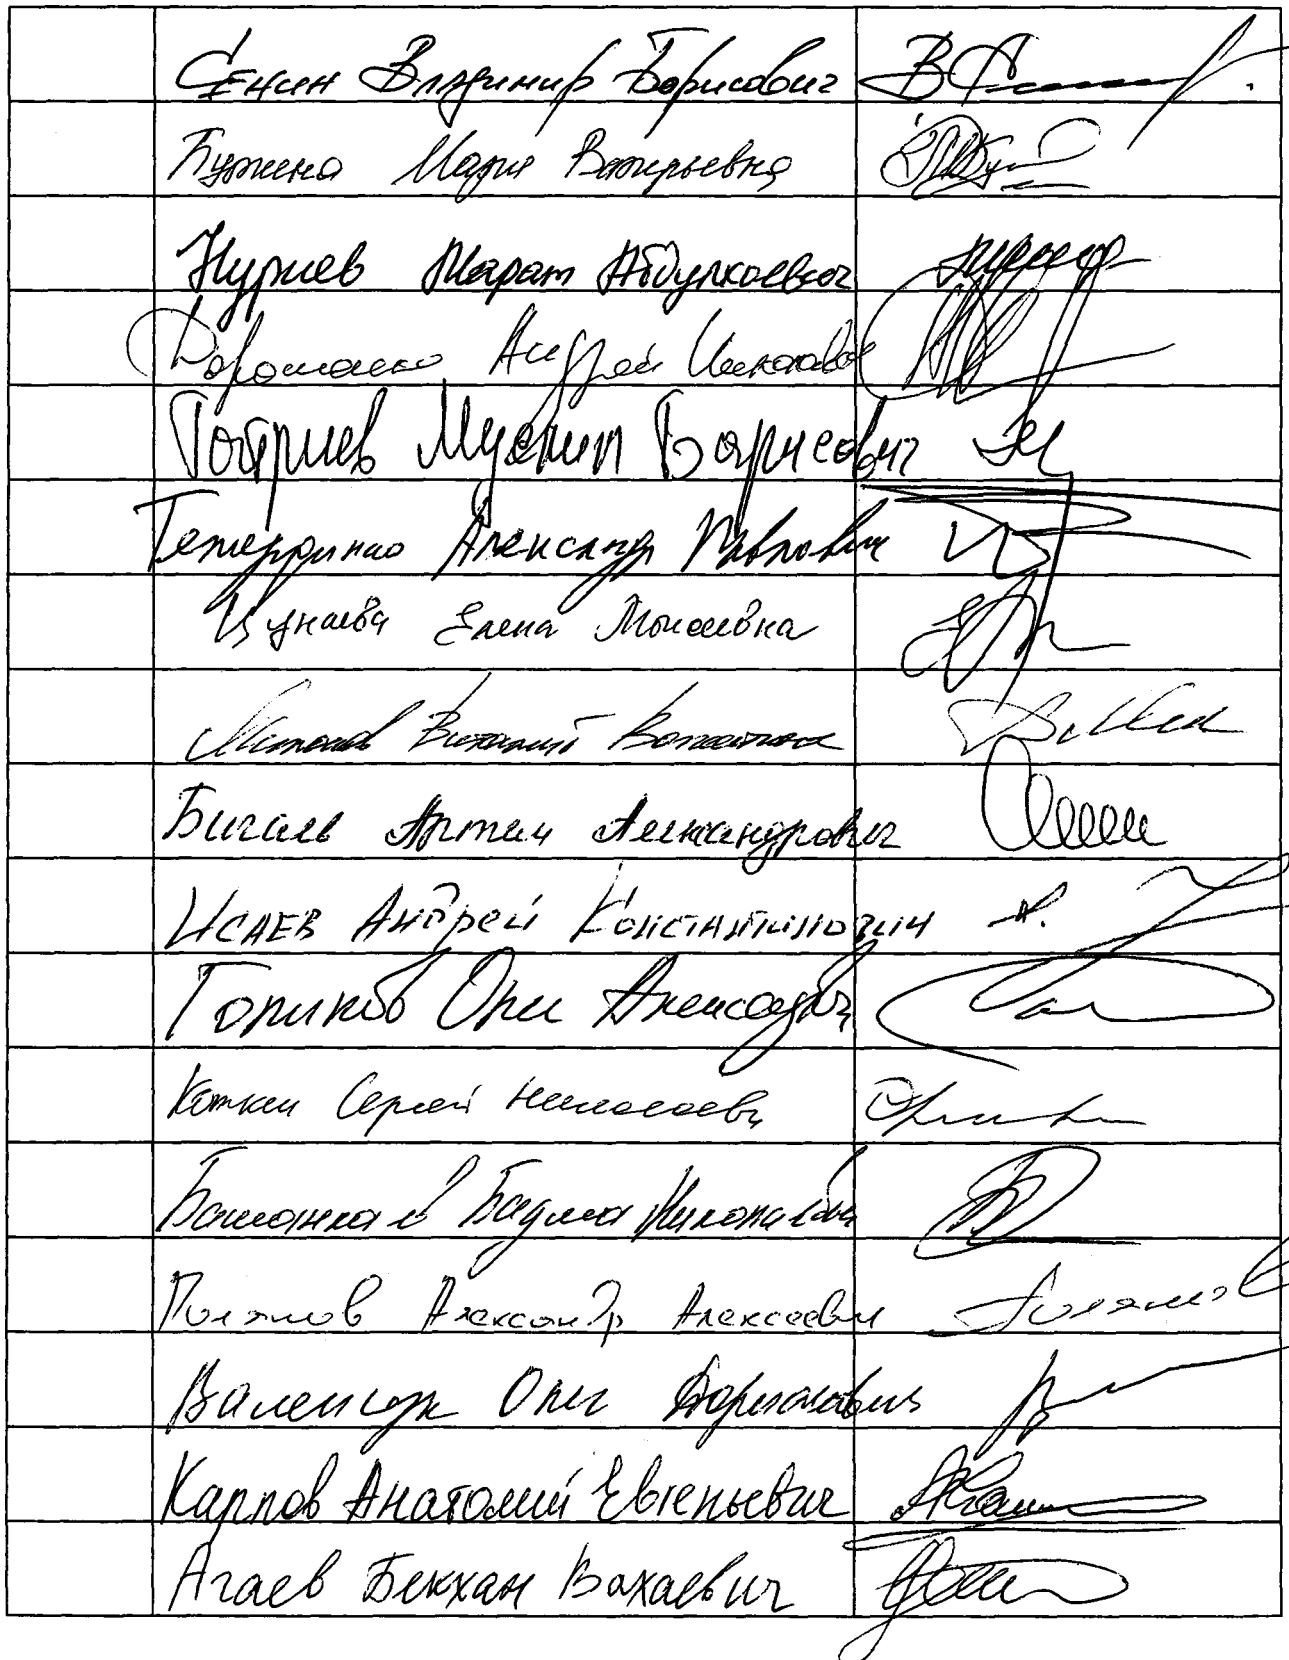 Сенин Владимир Борисович
Бутина Мария Валерьевна
Нуриев Марат Абдулхаевич
Дорошенко Андрей Николаевич
Татриев Муслим Барисович
Тетердинко Александр Павлович
Цунаева Елена Моисеевна
Милонов Виталий Валентинович
Бичаев Артём Александрович
Исаев Андрей Константинович
Голиков Олег Алексеевич
Коткин Сергей Николаевич
Башанкаев Бадма Николаевич
Поляков Александр Алексеевич
Валенчук Олег Дорианович
Карпов Анатолий Евгеньевич
Агаев Бекхан Вахаевич